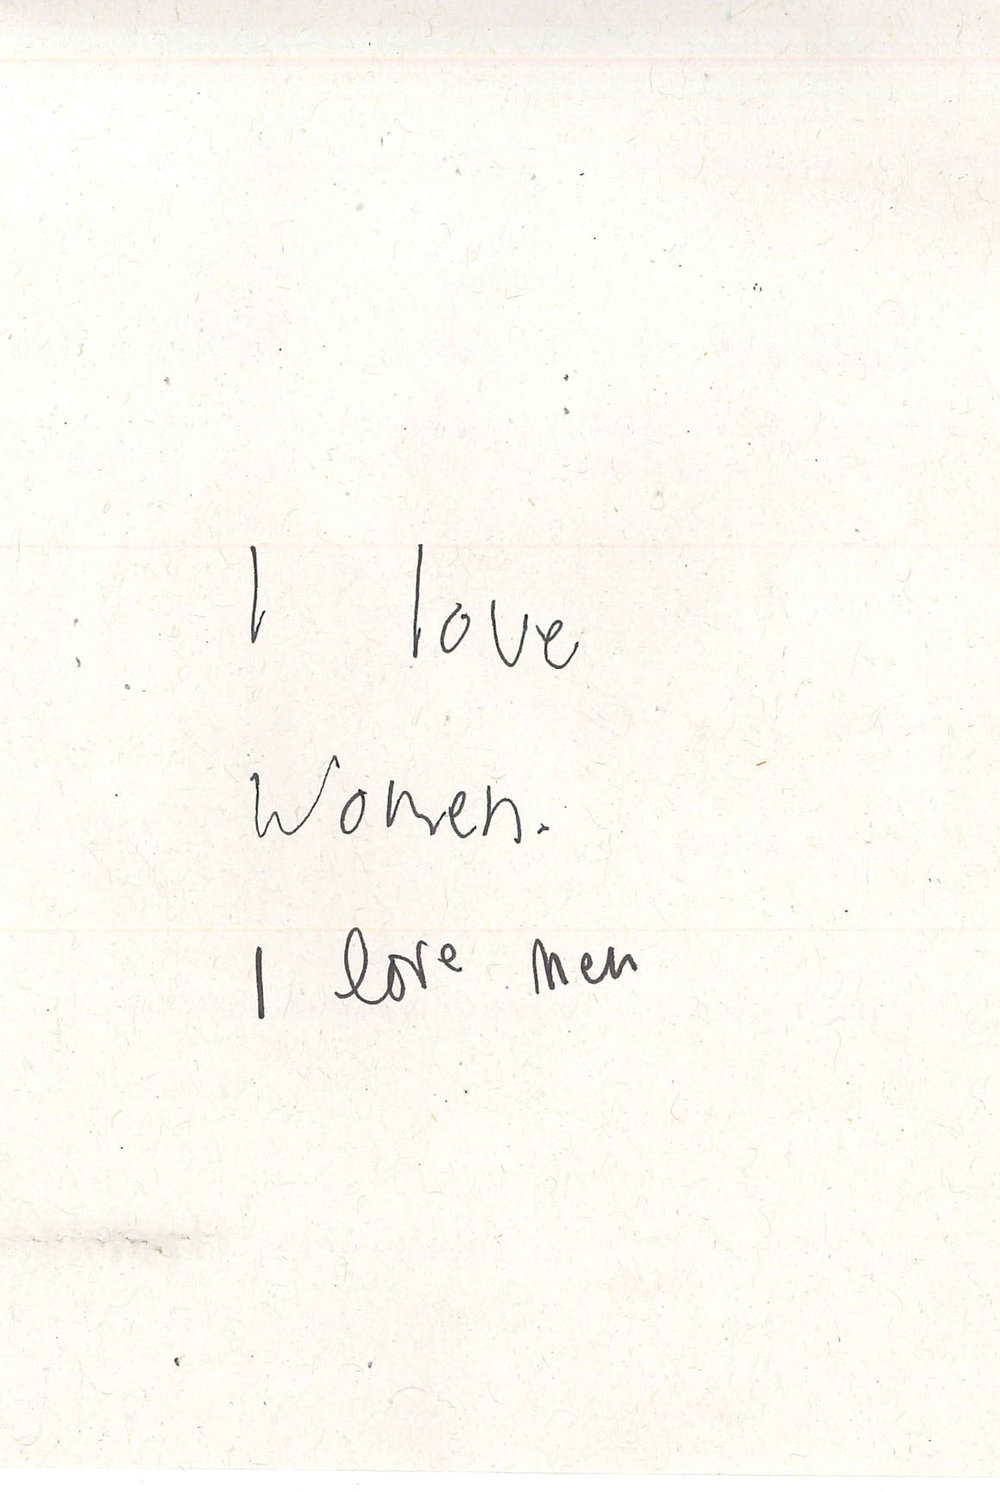 I love
Women.
I love men